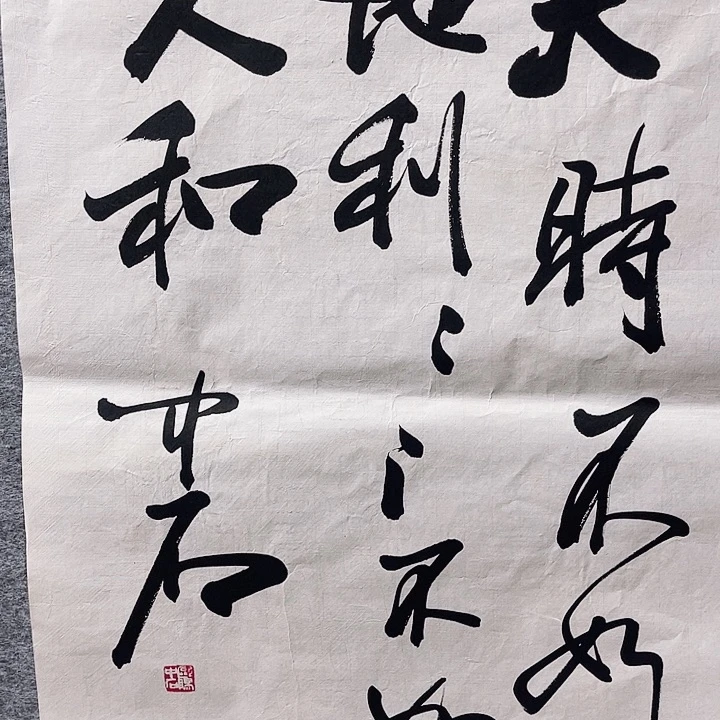 天時不如
地利〻〻不如
人和
中石